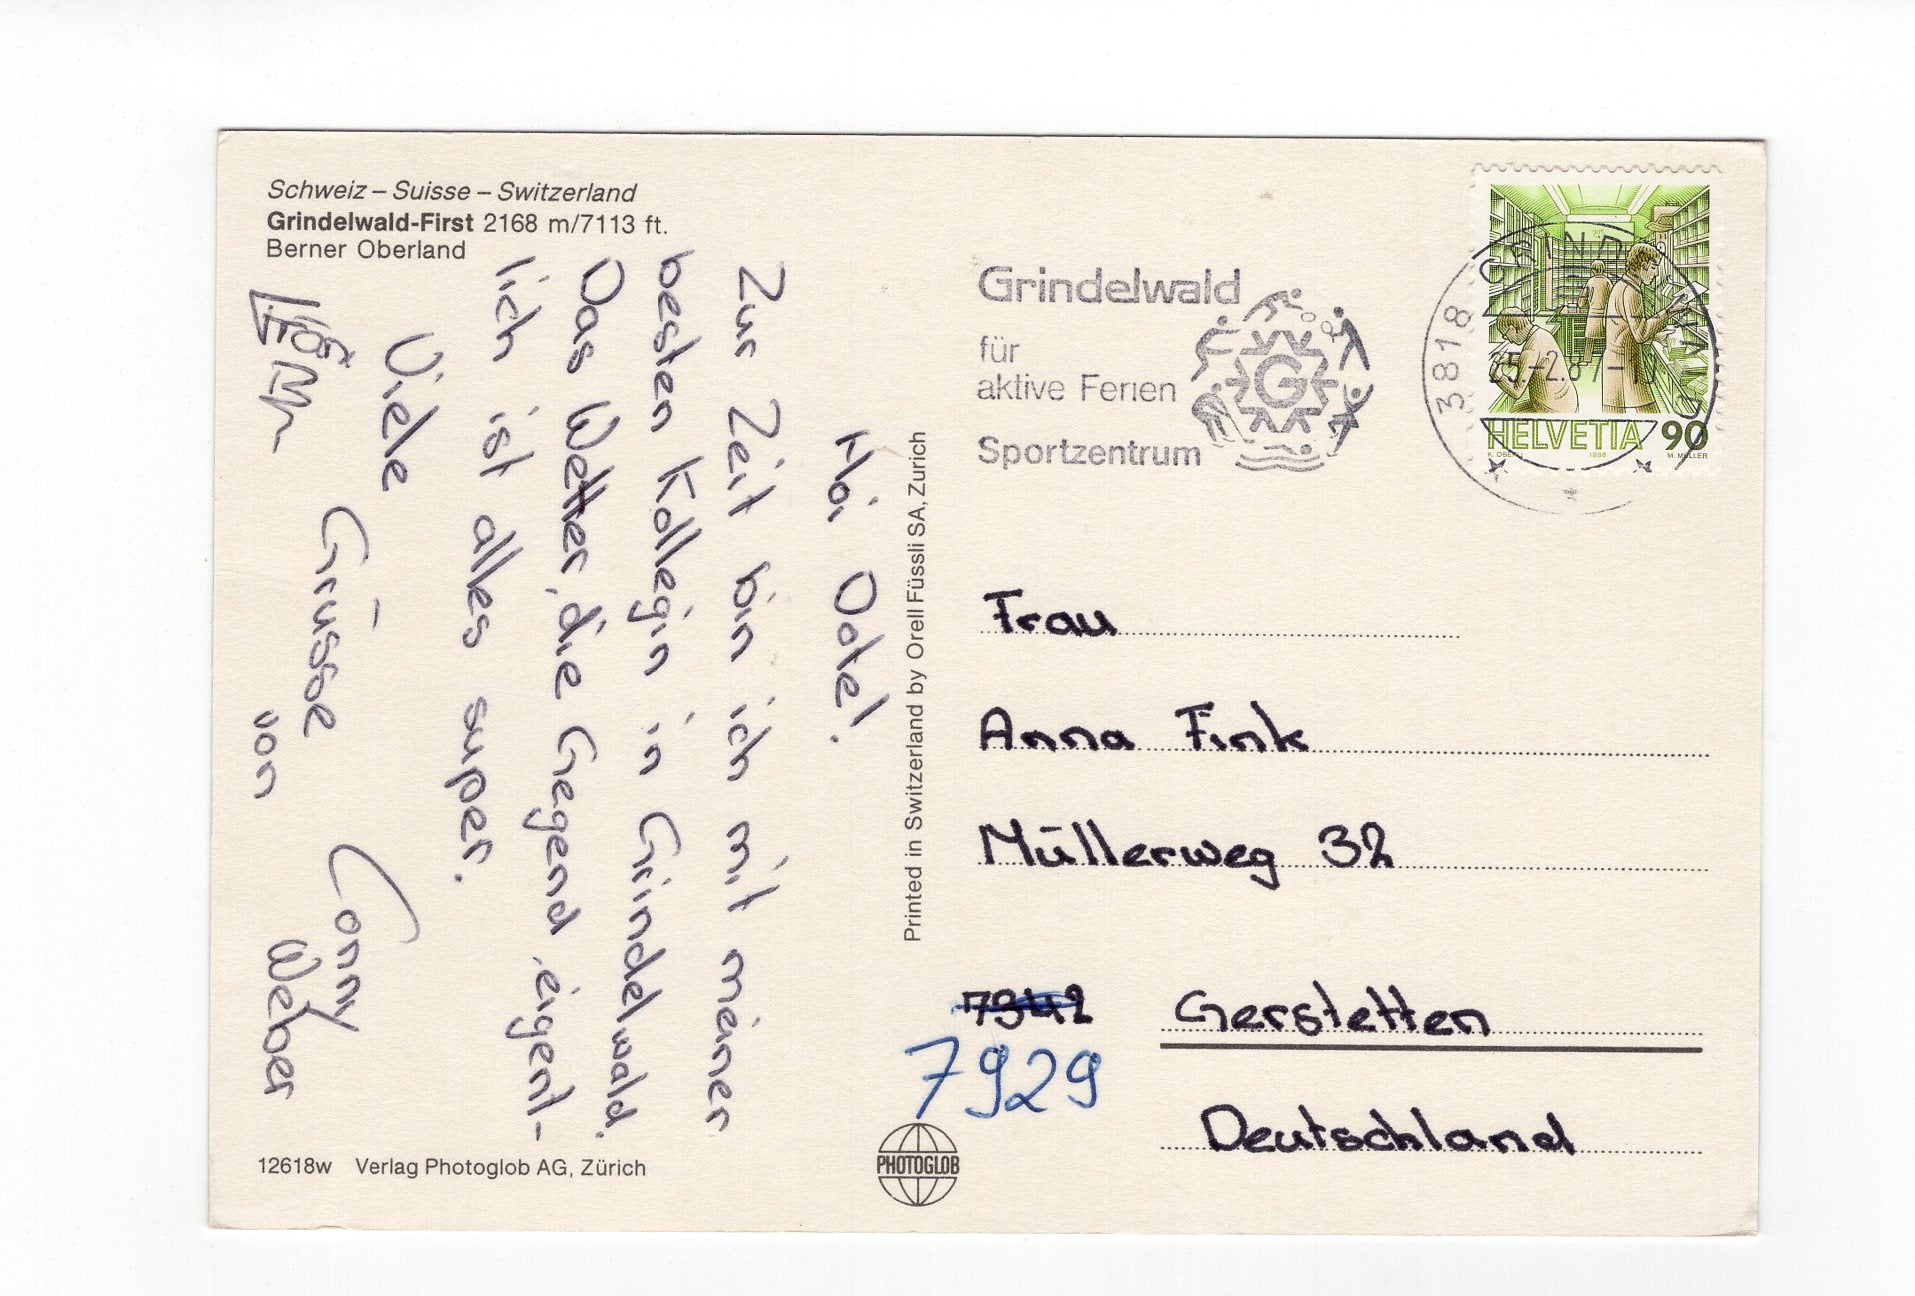 Schweiz – Suisse – Switzerland
Grindelwald-First 2168 m/7113 ft.
Berner Oberland
Hoi Odtel!
Zur Zeit bin ich mit meiner
besten Kollegin in Grindelwald.
Das Wetter, die Gegend eigent-
lich ist alles super.
Viele Grüsse
von Conny
Weber
12618w Verlag Photoglob AG, Zürich
Printed in Switzerland by Orell Füssli SA, Zurich
PHOTOGLOB
Grindelwald
für
aktive Ferien
Sportzentrum
G
3818 GRINDELWALD
HELVETIA 90
1986 M. MÜLLER
Frau
Anna Fink
Müllerweg 32
7942 Gerstetten
7929
Deutschland